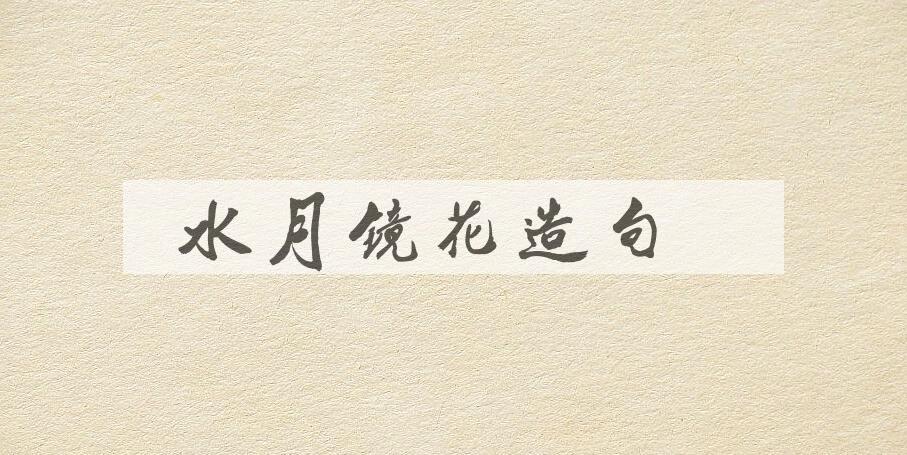 水月镜花造句